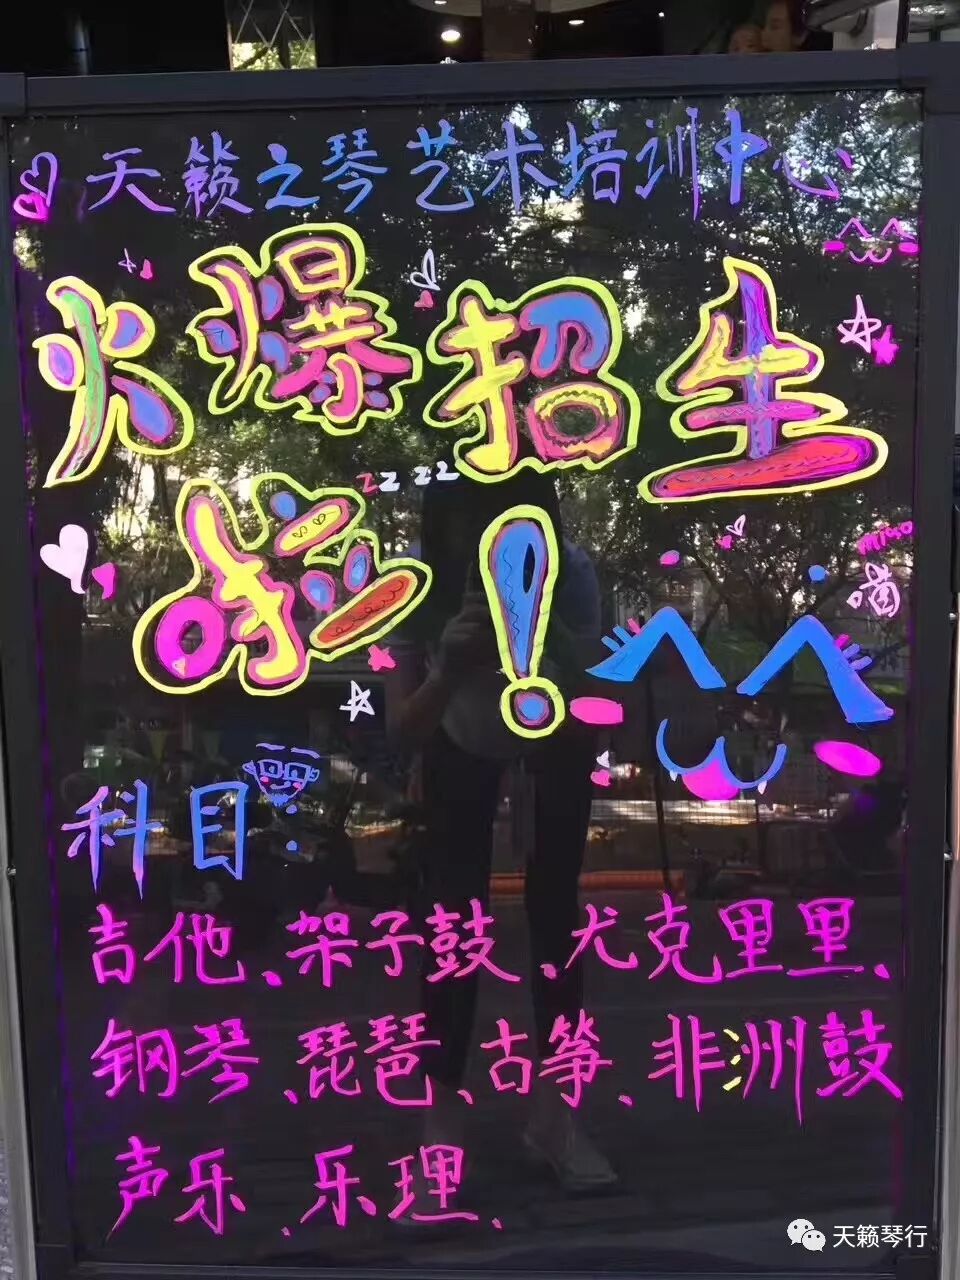 天籁之琴艺术培训中心
火爆招生
zzzzz
啦！
miao
喵
科目：
吉他、架子鼓、尤克里里、
钢琴、琵琶、古筝、非洲鼓
声乐、乐理、
天籁琴行